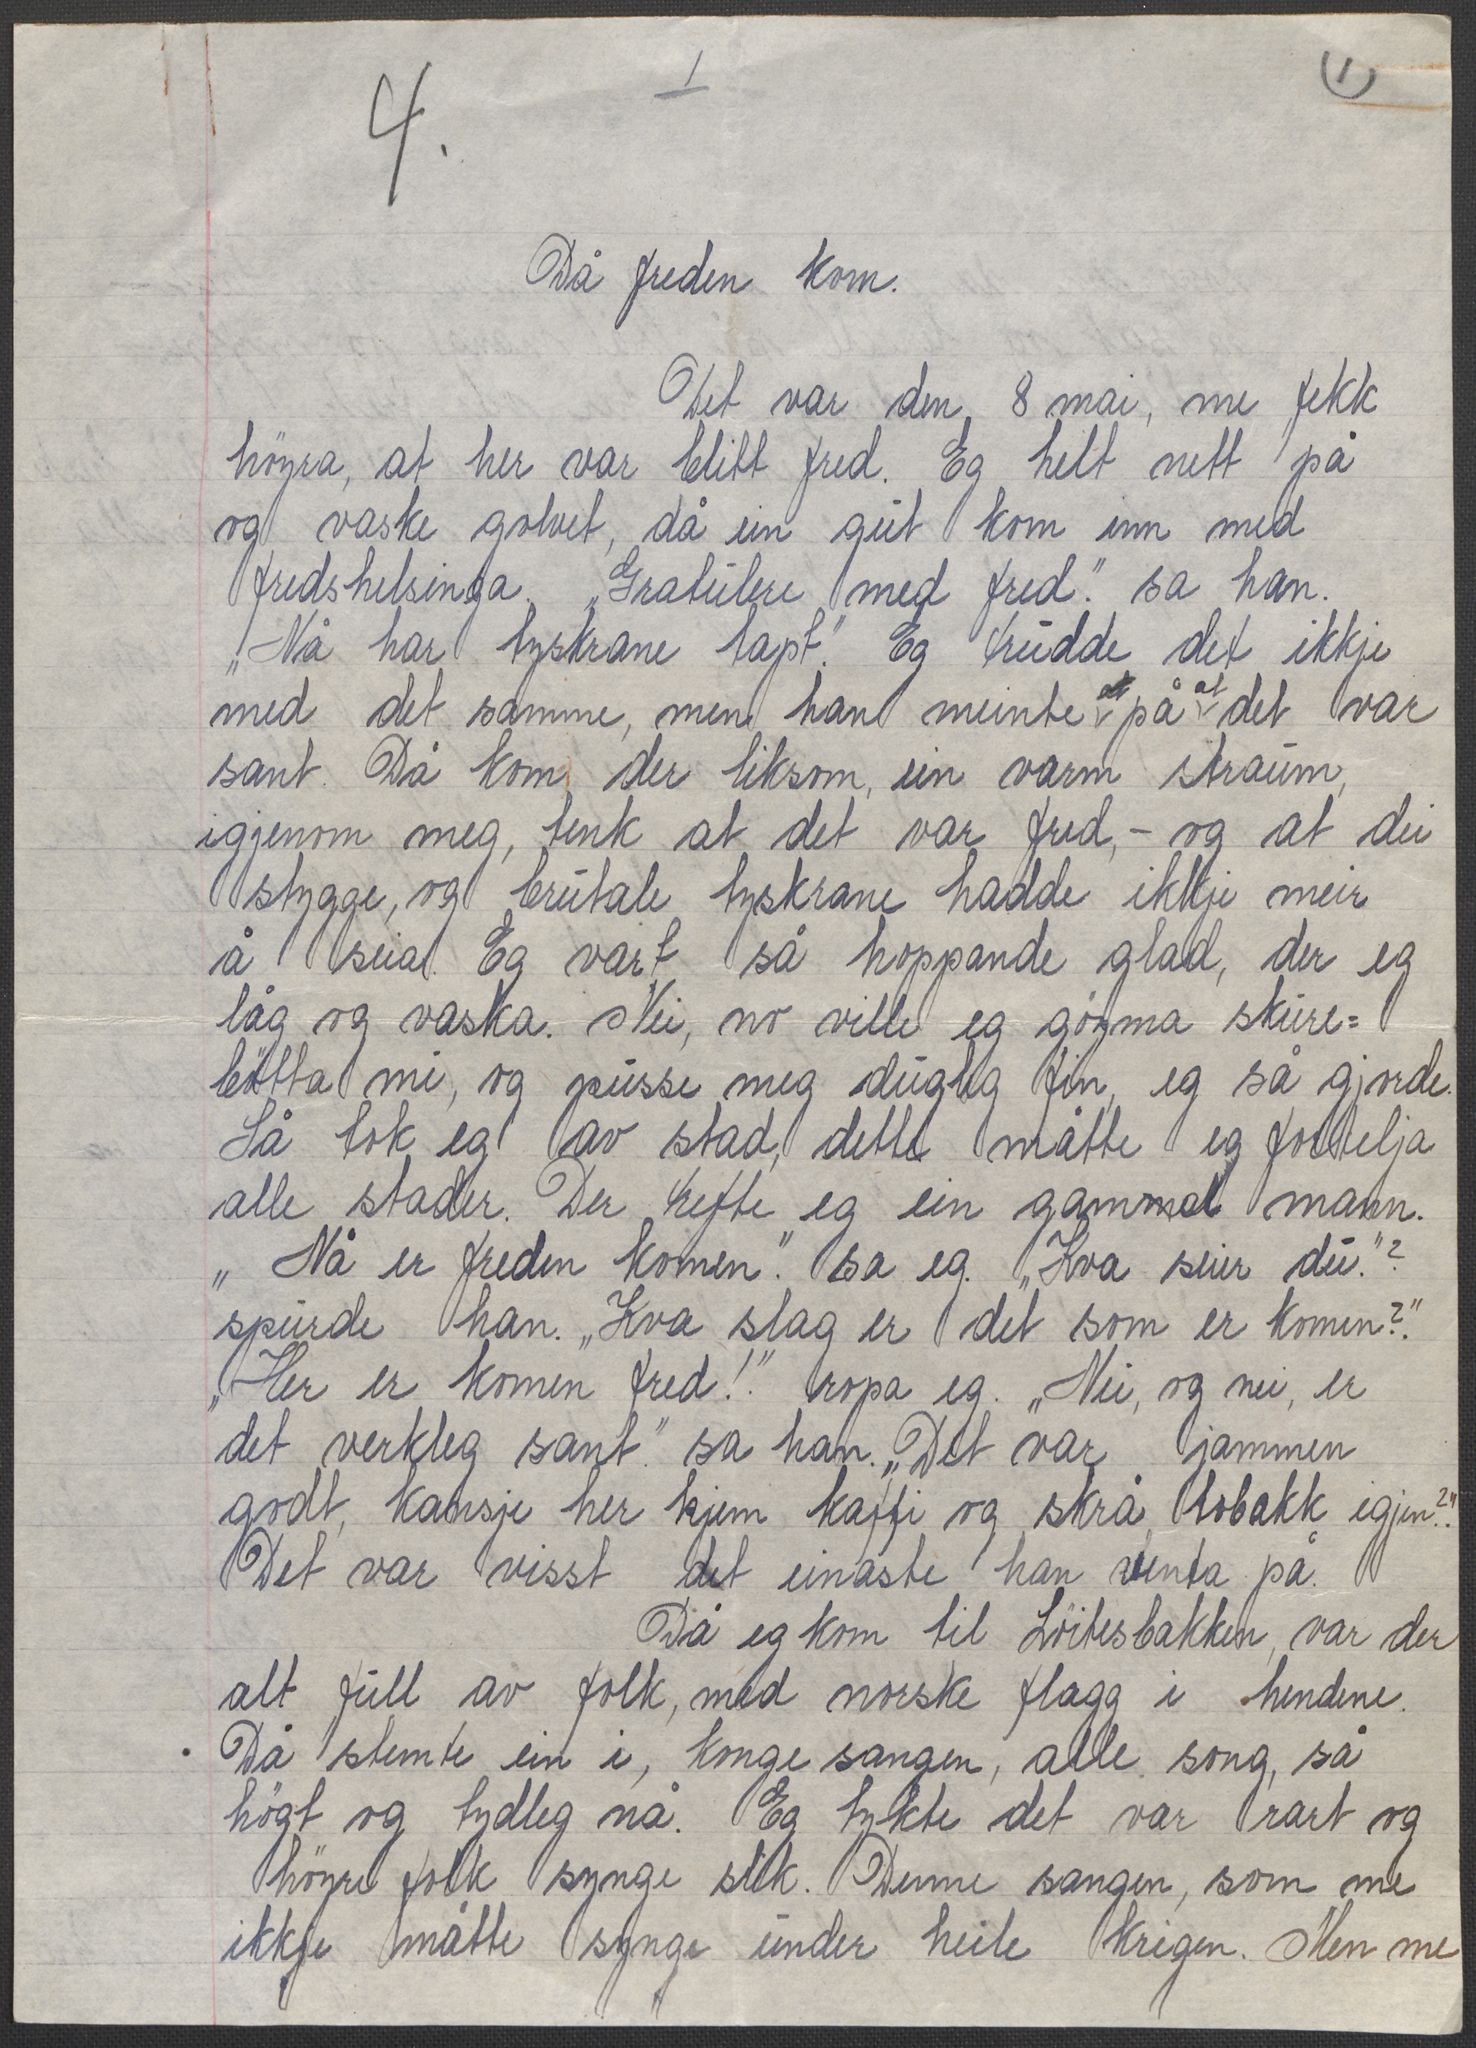 4.
1
1
Då freden kom.
Det var den 8 mai, me fekk
höyra, at her var blitt fred. Eg helt nett på
og vaske golvet, då ein gut kom inn med
fredshelsinga. „Gratulere med fred." sa han.
„Nå har tyskrane tapt." Eg trudde det ikkje
med det samme, men han meinte på at det var
sant. Då kom der liksom, ein varm straum,
igjenom meg, tenk at det var fred, - og at dei
stygge, og brutale tyskrane hadde ikkje meir
å seia. Eg vart så hoppande glad, der eg
låg og vaska. Nei, no ville eg göyma skure=
bötta mi, og pusse meg dugleg fin, eg så gjorde.
Så tok eg av stad, dette måtte eg fortelja
alle stader. Der trefte eg ein gammal mann.
„Nå er freden komen." sa eg. „Kva seier du."?
spurde han. „Kva slag er det som er komen?."
„Her er komen fred!." ropa eg. „Nei, og nei, er
det verkleg sant." sa han. „Det var jammen
godt, kansje her kjem kaffi og skrå tobakk igjen?."
Det var visst det einaste han venta på.
Då eg kom til Löitesbakken, var der
alt full av folk, med norske flagg i hendene.
Då stemte ein i, konge sangen, alle song, så
högt og tydleg nå. Eg tykte det var rart og
höyre folk synge slik. Denne sangen, som me
ikkje måtte synge under heile krigen. Men me